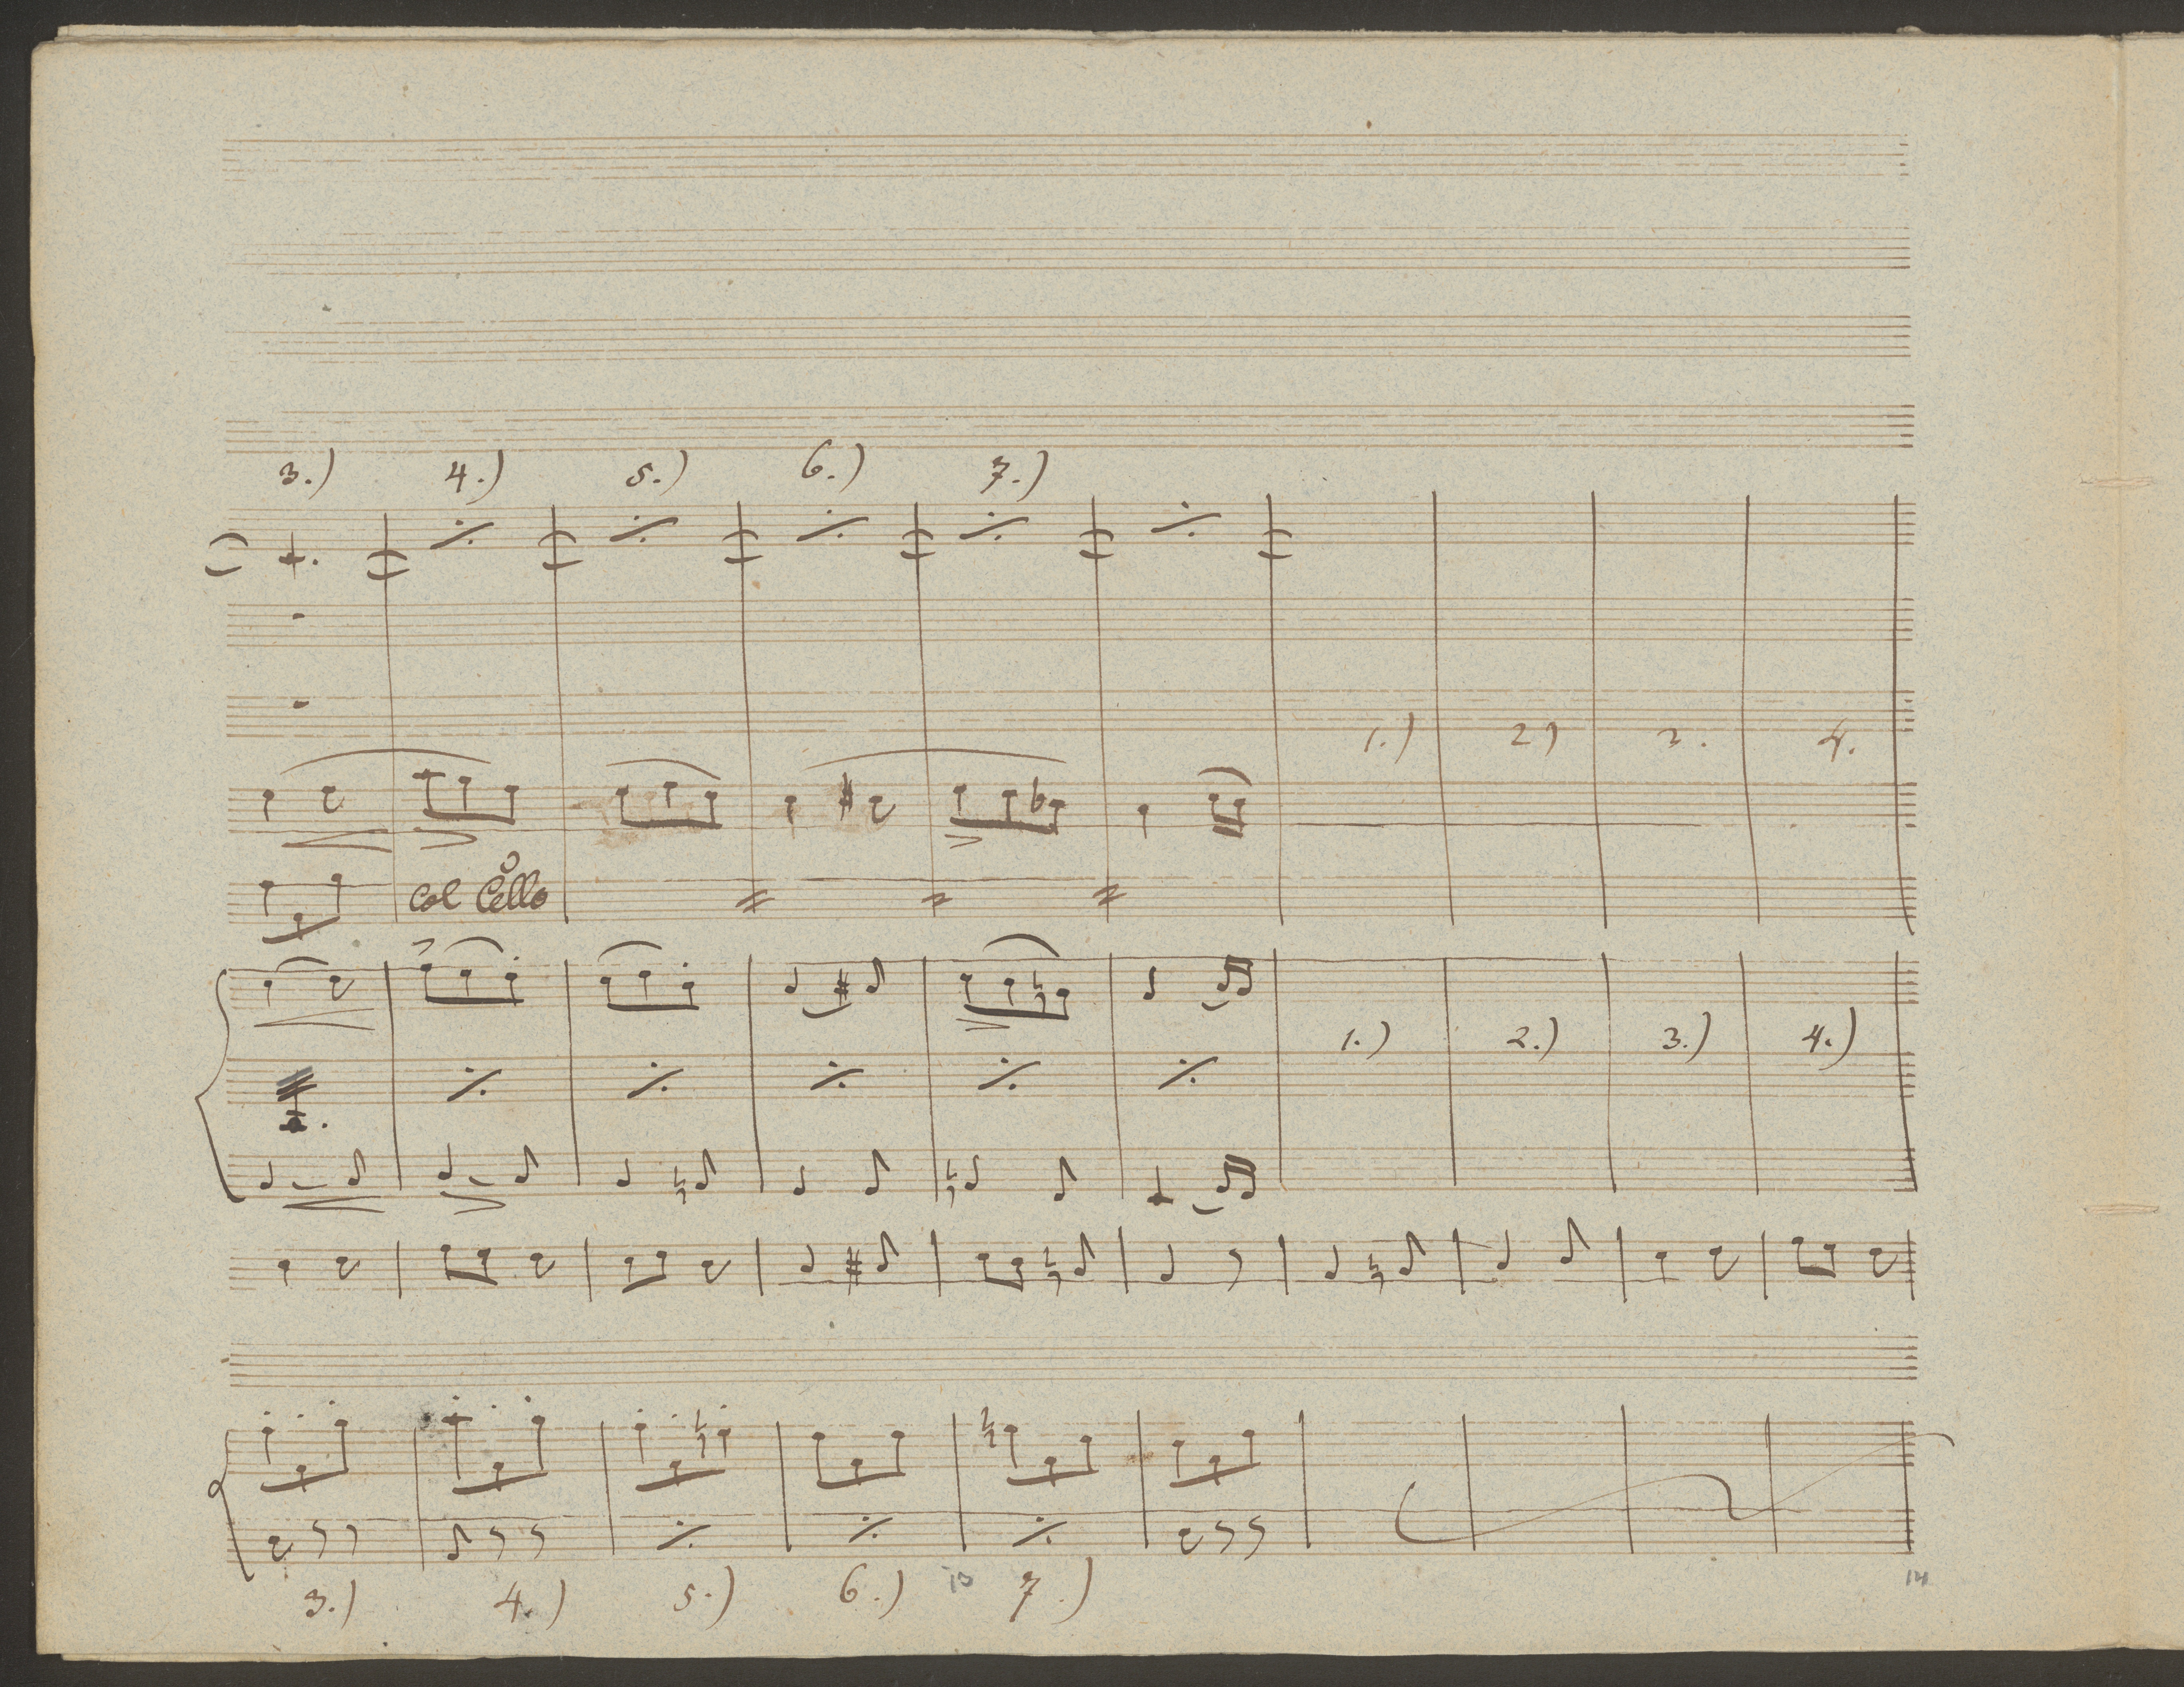 3.) 4.) 5.) 6.) 7.)
1.) 2) 3. 4.
col Cello
1.) 2.) 3.) 4.)
3.) 4.) 5.) 6.) 13 7.) 14